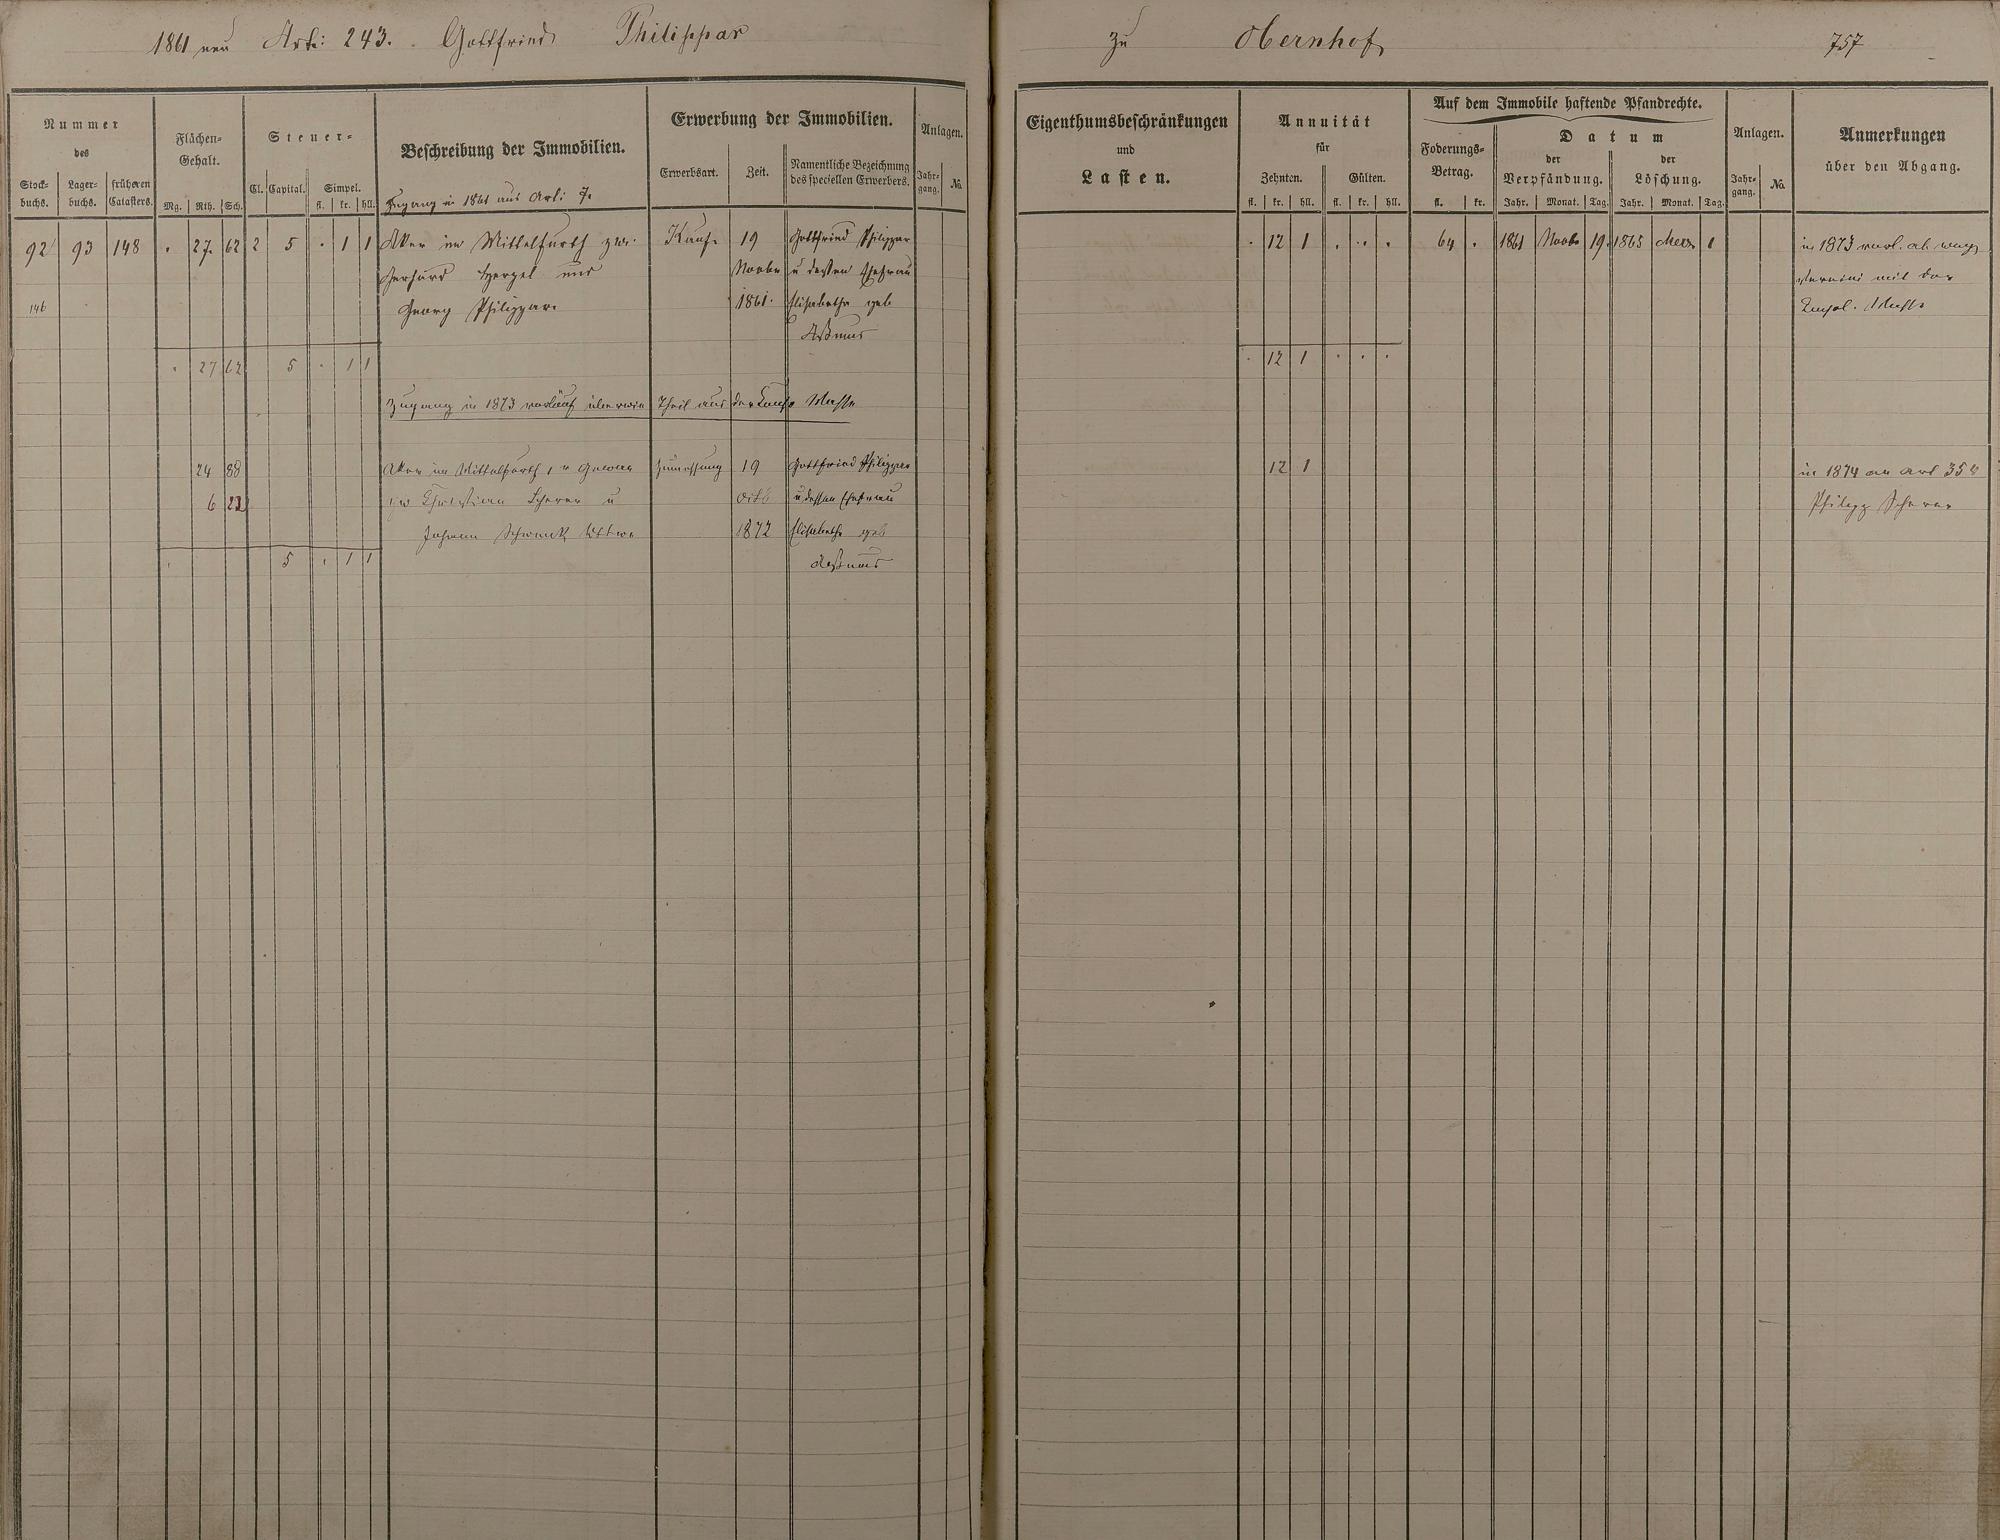 1861 neu Arti: 243. Gottfried Philippar
zu Obernhof 757
Nummer
des
Stock-
buchs.
Lager-
buchs.
früheren
Catasters.
Flächen-
Gehalt.
Mg. Rth. Sch.
Steuer-
Cl. Capital.
Simpel.
fl. kr. hll.
Beschreibung der Immobilien.
Zugang in 1861 aus Arti: 7.
Erwerbung der Immobilien.
Erwerbsart.
Zeit.
Namentliche Bezeichnung
des speciellen Erwerbers.
Anlagen.
Jahr-
gang.
No.
Eigenthumsbeschränkungen
und
Lasten.
Annuität
für
Zehnten. Gülten.
fl. kr. hll. fl. kr. hll.
Auf dem Immobile haftende Pfandrechte.
Foderungs-
Betrag.
fl. kr.
Datum
der
Verpfändung.
Jahr. Monat. Tag.
der
Löschung.
Jahr. Monat. Tag.
Anlagen.
Jahr-
gang.
No.
Anmerkungen
über den Abgang.
92 93 148 . 27. 62 2 5 . 1 1 Aker im Mittelfurth zw. Kauf. 19 Gottfried Philippar . 12 1 . . . 64 . 1861 Novbr 19. 1865 Merz 1 in 1873
Gerhard Hergel und Novbr u dessen Ehefrau mit der
146 Georg Philippar. 1861. Elisabetha geb Masse
Aßmus
. 27 62 5 . 1 1 . 12 1 . . .
Zugang in 1873 Theil aus der Masse
24 88 Aker im Mittelfurth, Gewan 19 Gottfried Philippar 12 1 in 1874 an Art 35
6 23 zw Christian Scherer u Octb u dessen Ehefrau Philipp Scherer
Johann Schwenk Wttwe 1872 Elisabetha geb
. 5 . 1 1 Aßmus